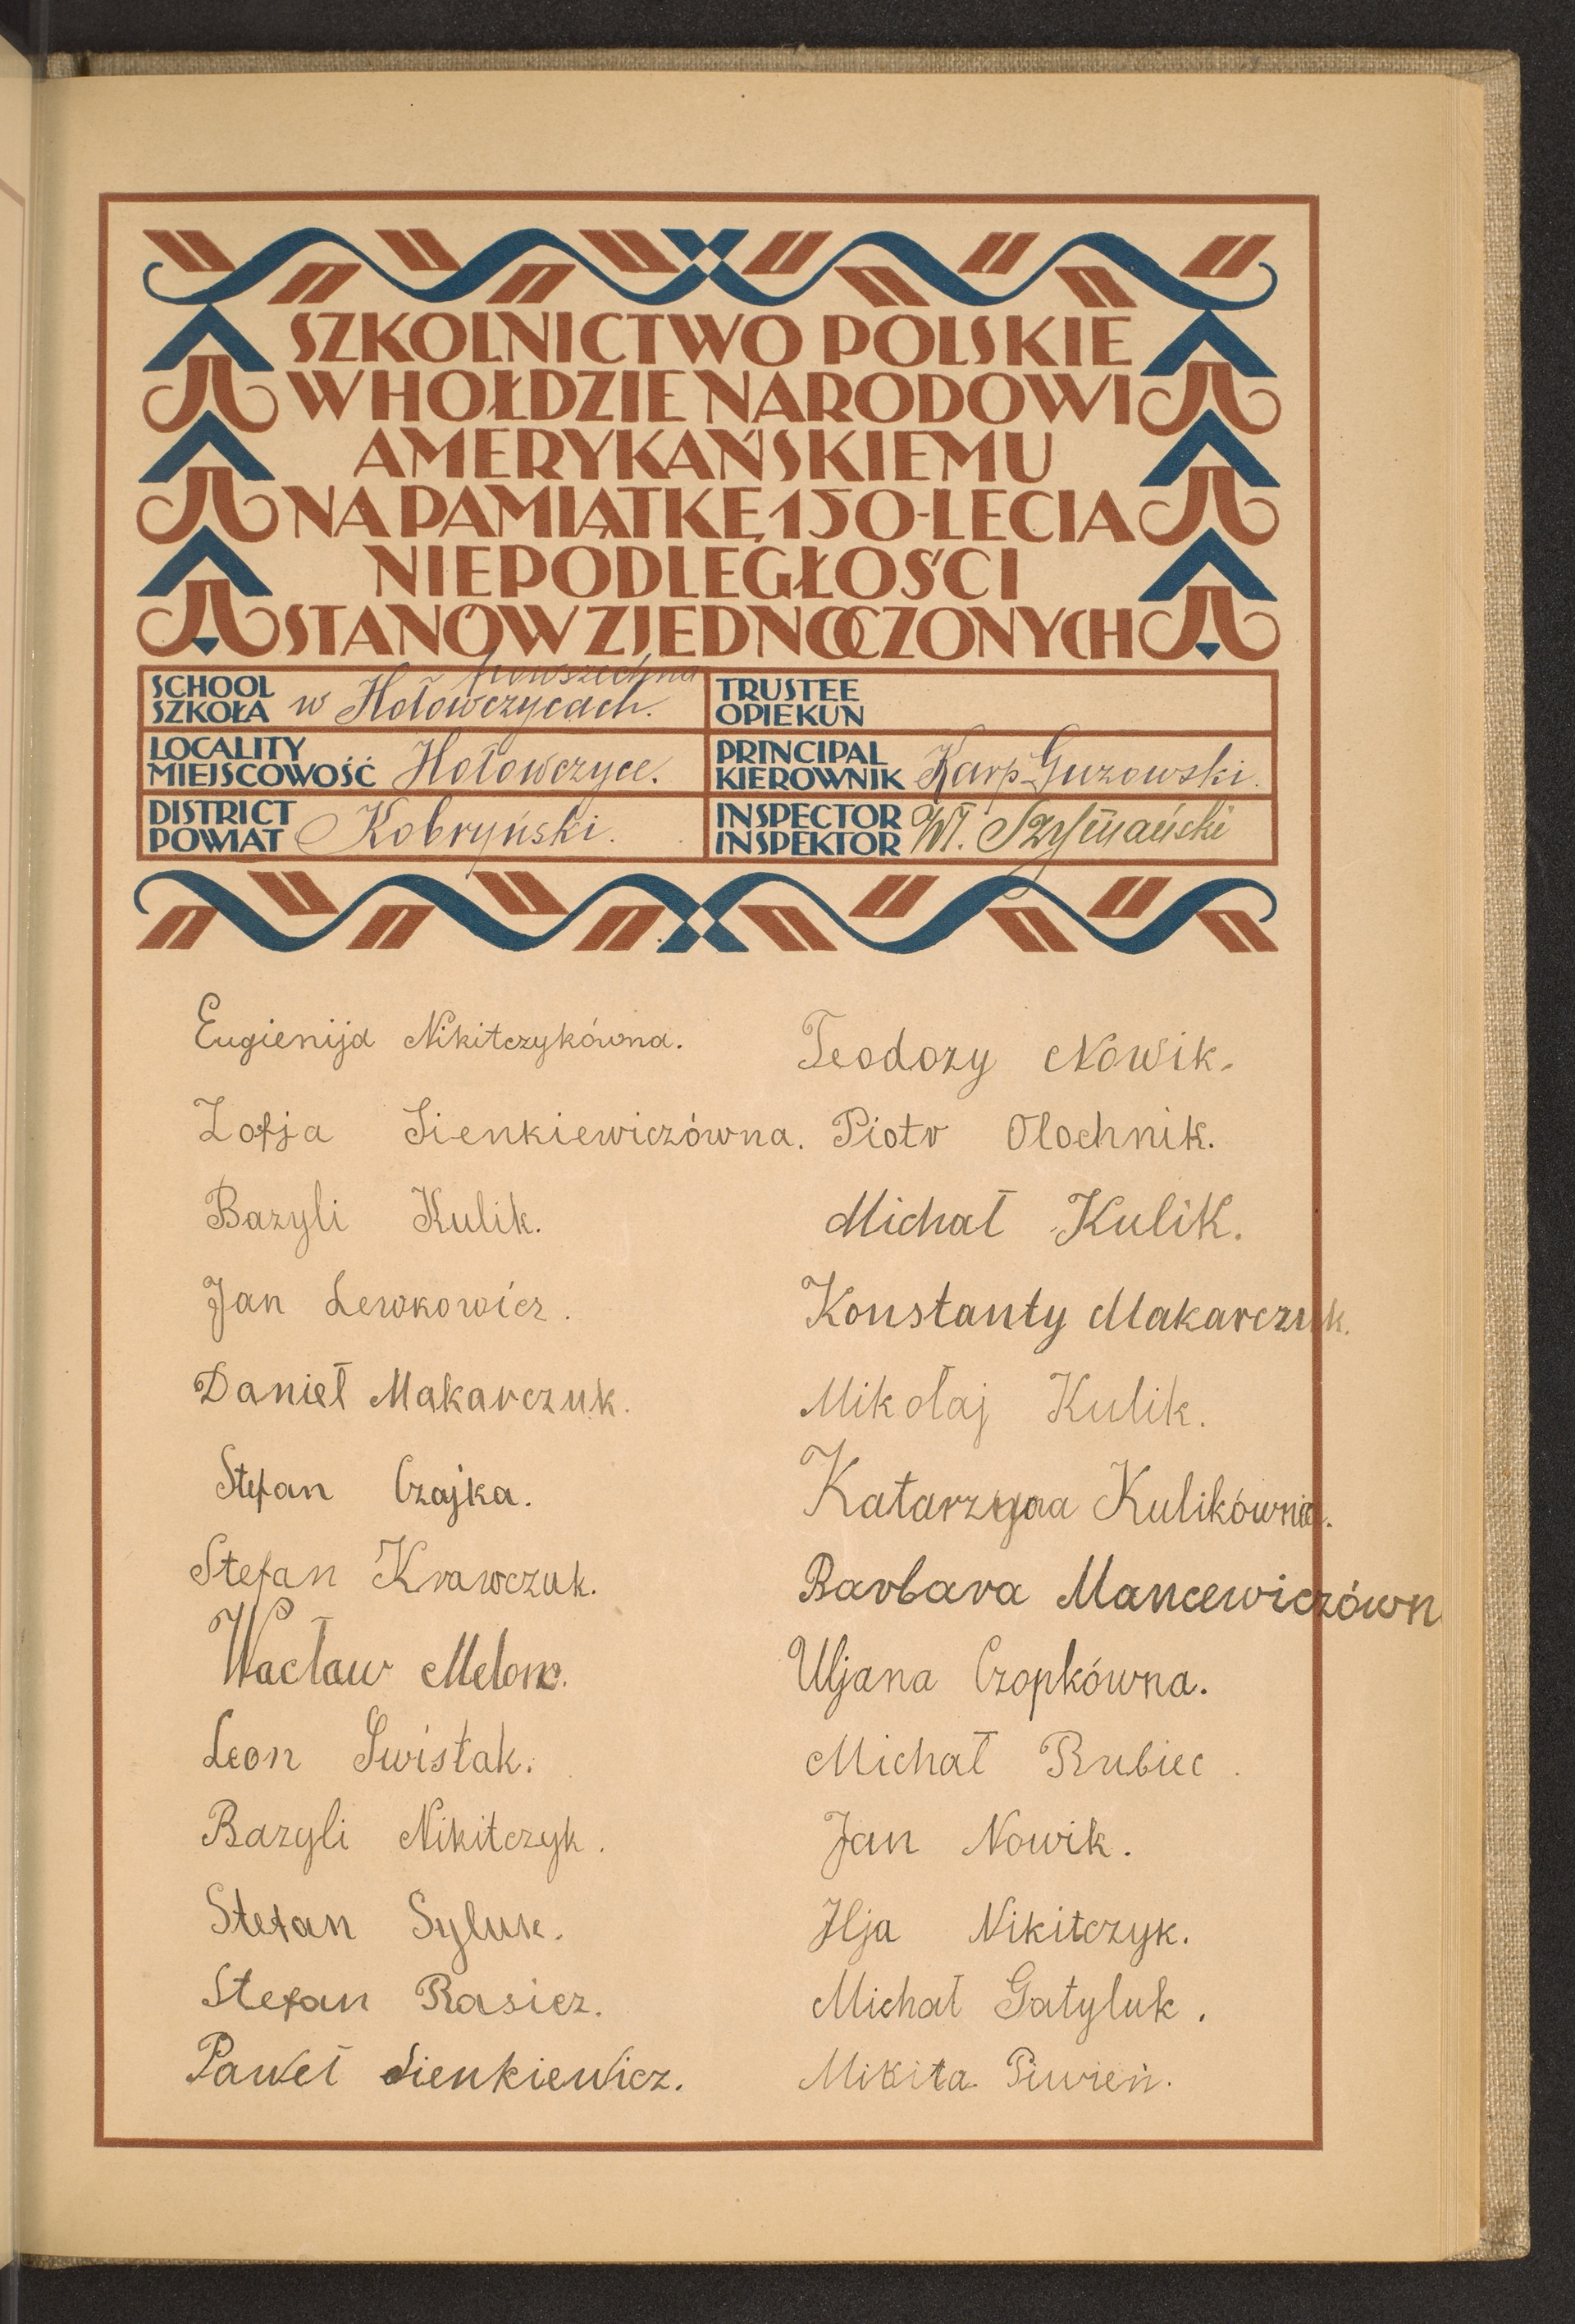 SZKOLNICTWO POLSKIE
W HOŁDZIE NARODOWI
AMERYKAŃSKIEMU
NA PAMIĄTKĘ 150-LECIA
NIEPODLEGŁOŚCI
STANÓW ZJEDNOCZONYCH
SCHOOL
SZKOŁA
powszechna
w Hołowczycach.
TRUSTEE
OPIEKUN
LOCALITY
MIEJSCOWOŚĆ Hołowczyce.
PRINCIPAL
KIEROWNIK Karp Guzowski.
DISTRICT
POWIAT Kobryński.
INSPECTOR
INSPEKTOR Wł. Szymański
Eugienija Nikitczykówna.
Zofja Sienkiewiczówna.
Bazyli Kulik.
Jan Lewkowicz.
Danieł Makarczuk.
Stefan Czajka.
Stefan Krawczuk.
Wacław
Leon Swistak.
Bazyli Nikitczyk.
Stefan Syluk.
Stefan Rasicz.
Paweł Sienkiewicz.
Teodozy Nowik.
Piotr Olochnik.
Michał Kulik.
Konstanty Makarczuk.
Mikołaj Kulik.
Katarzyna Kulikówna.
Barbara Mancewiczówn
Uljana Czopkówna.
Michał Rubiec.
Jan Nowik.
Ilja Nikitczyk.
Michał Gatyluk.
Mikita Piwień.